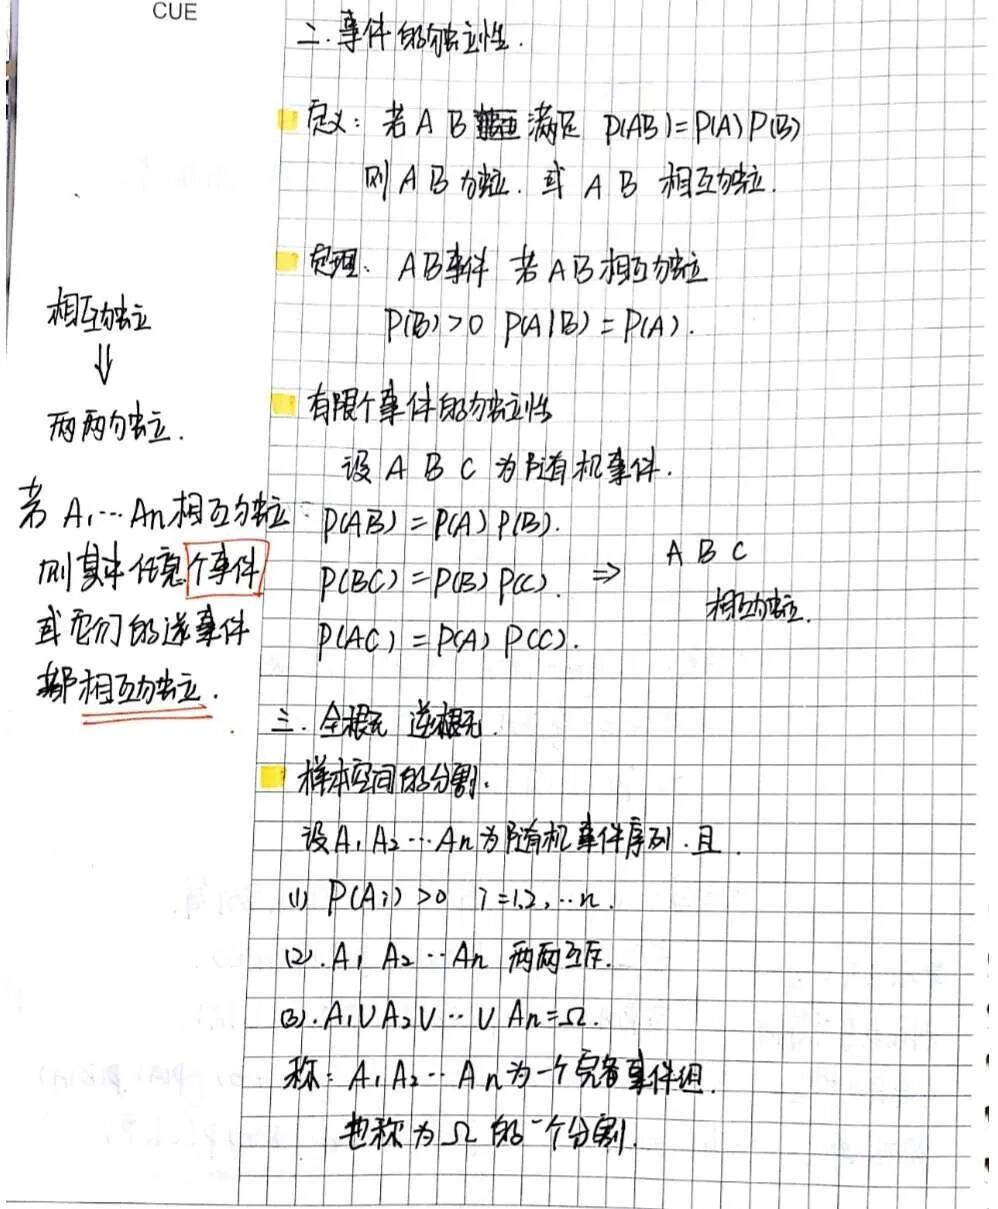 CUE
二.事件的独立性.
定义: 若 A B 满足 P(AB)=P(A)P(B)
则 A B 独立. 或 A B 相互独立.
定理: A B事件 若 A B 相互独立
P(B)>0 P(A|B)=P(A).
有限个事件的独立性
设 A B C 为随机事件.
P(AB)=P(A)P(B).
P(BC)=P(B)P(C). ⇒ A B C
P(AC)=P(A)P(C). 相互独立.
相互独立
⇓
两两独立.
若 A₁…An相互独立
则其中任意个事件
或它们的逆事件
都相互独立.
三.全概元 逆概元.
样本空间的分割.
设A₁ A₂…An为随机事件序列.且
(1) P(Ai)>0 i=1,2,…n.
(2).A₁ A₂…An 两两互斥.
(3).A₁∪A₂∪…∪An=Ω.
称: A₁ A₂…An为一个完备事件组.
也称为Ω的一个分割.